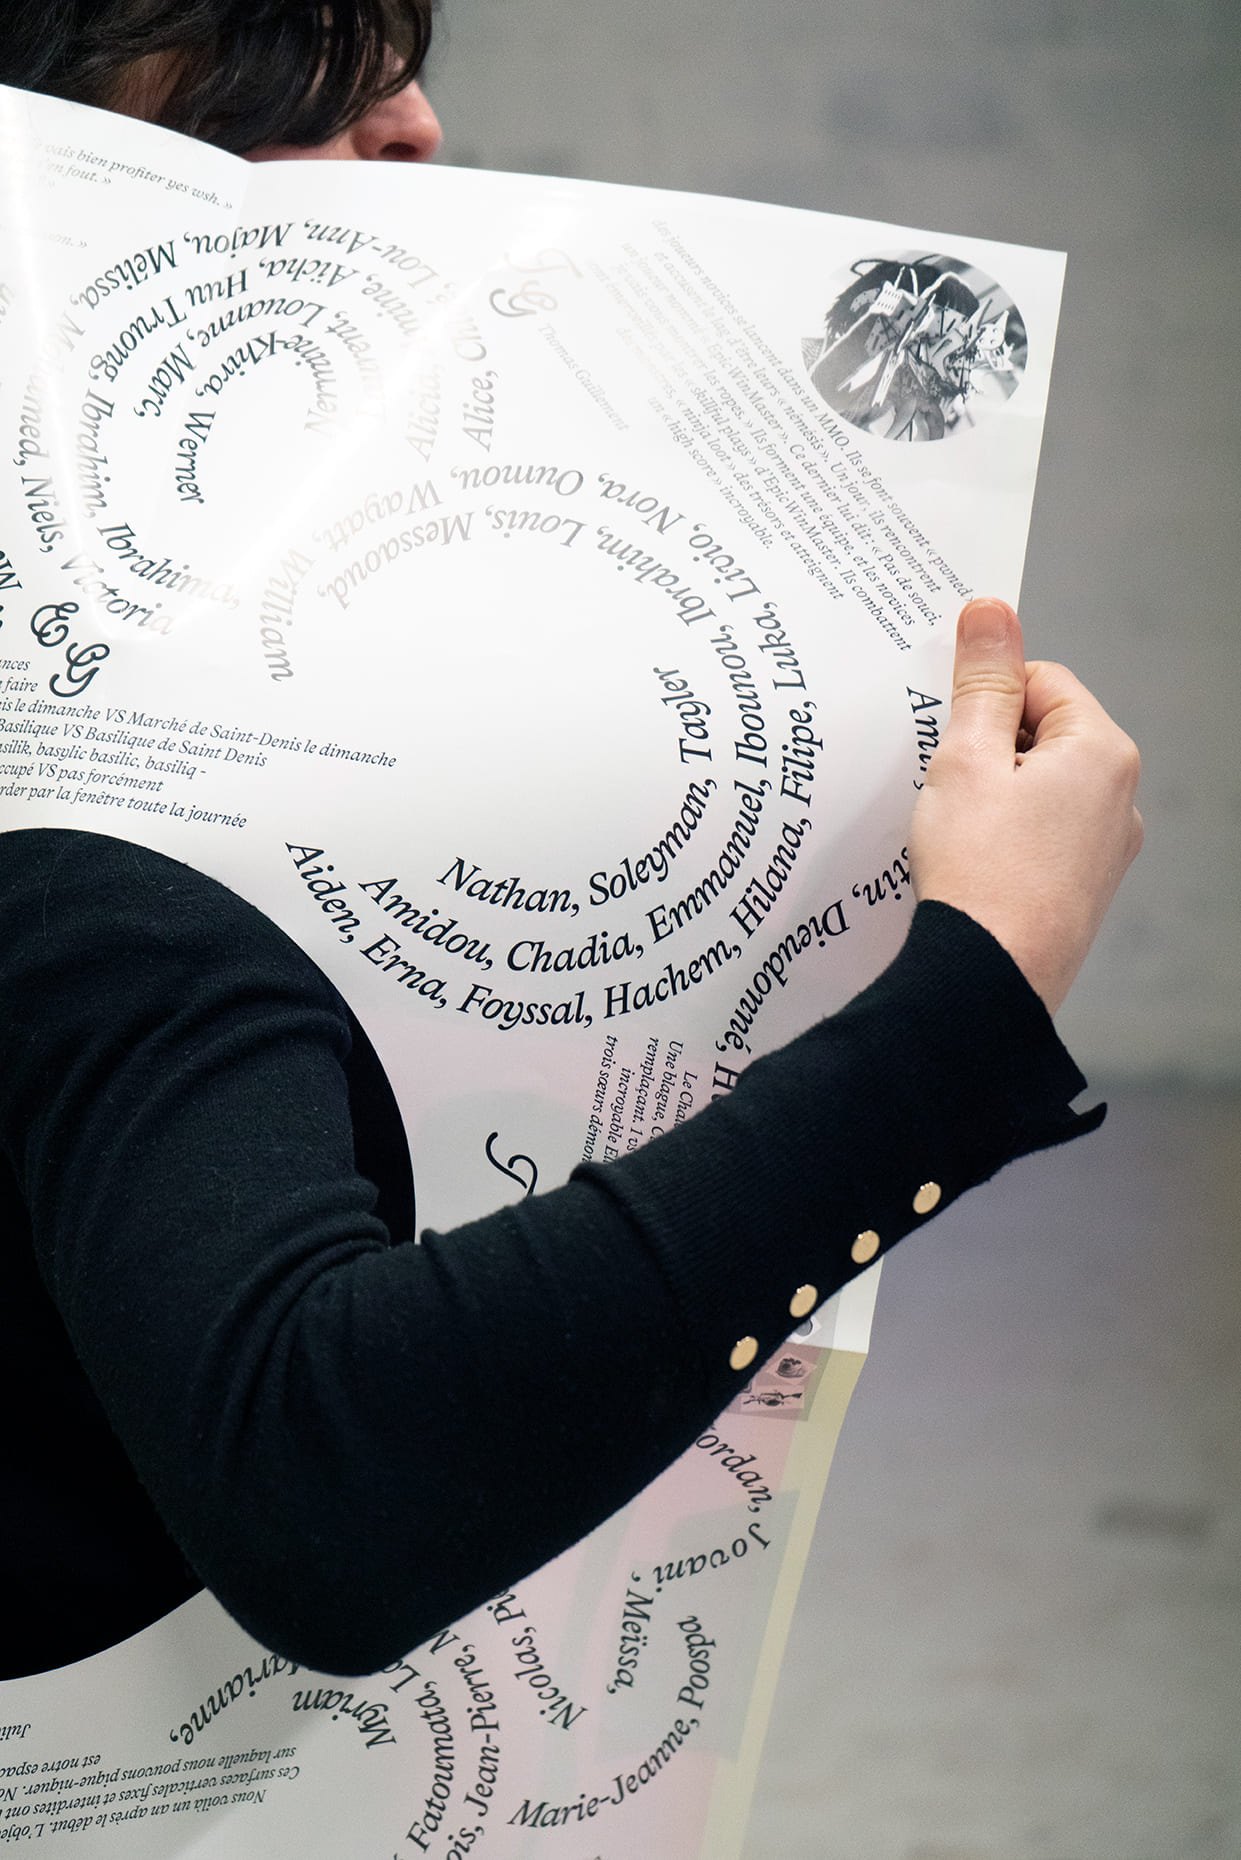 vais bien profiter yes wsh. »
en fout. »
Mélissa, Majou, Lou-Ann,
Ibrahim, Truong, Huu Aïcha,
Marc, Louanne,
Werner
Nermine-Khira,
Alicia,
Alice,
Niels,
Victoria
Ibrahim, Ibrahima,
T
G
Thomas Guillement
des joueurs novices se lancent dans un MMO. Ils se font souvent « pwned »
et accusent le lag d'être leurs « némésis ». Un jour, ils rencontrent
EpicWinMaster ». Ce dernier lui dit : « Pas de souci,
les ropes. » Ils forment une équipe, et les novices
« skillful plays » d'EpicWinMaster. Ils combattent
« ninja loot » des trésors et atteignent
un « high score » incroyable.
William, Wayatt, Oumou, Nora, Livio, Luka, Filipe, Hilana, Hachem, Foyssal, Erna, Aiden,
Messaoud, Louis, Ibrahim, Ibounou, Emmanuel, Chadia, Amidou,
Tayler
Soleyman,
Nathan,
E
G
nces
faire
is le dimanche VS Marché de Saint-Denis le dimanche
Basilique VS Basilique de Saint Denis
silik, basylic basilic, basiliq -
ccupé VS pas forcément
rder par la fenêtre toute la journée
tin, Dieudonné,
Une blague,
remplaçant. 1 vs
incroyable
trois sœurs démon
ordan,
Jovani,
Meïssa,
Marie-Jeanne, Poospa
Nicolas,
Jean-Pierre,
Fatoumata,
Marianne,
Myriam
Nous voilà un an après le début. L'obje
Ces surfaces verticales fixes et interdites ont
sur laquelle nous pouvons pique-niquer.
est notre espa